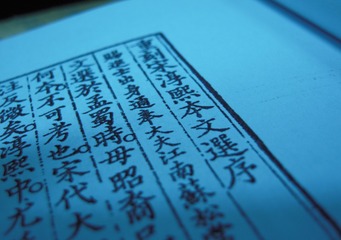 重刻宋淳熙本文選序
賜進士出身通奉大夫江南蘇松
文選於孟蜀時毋昭裔
何本不可考也宋代大
注反微矣淳熙中尤